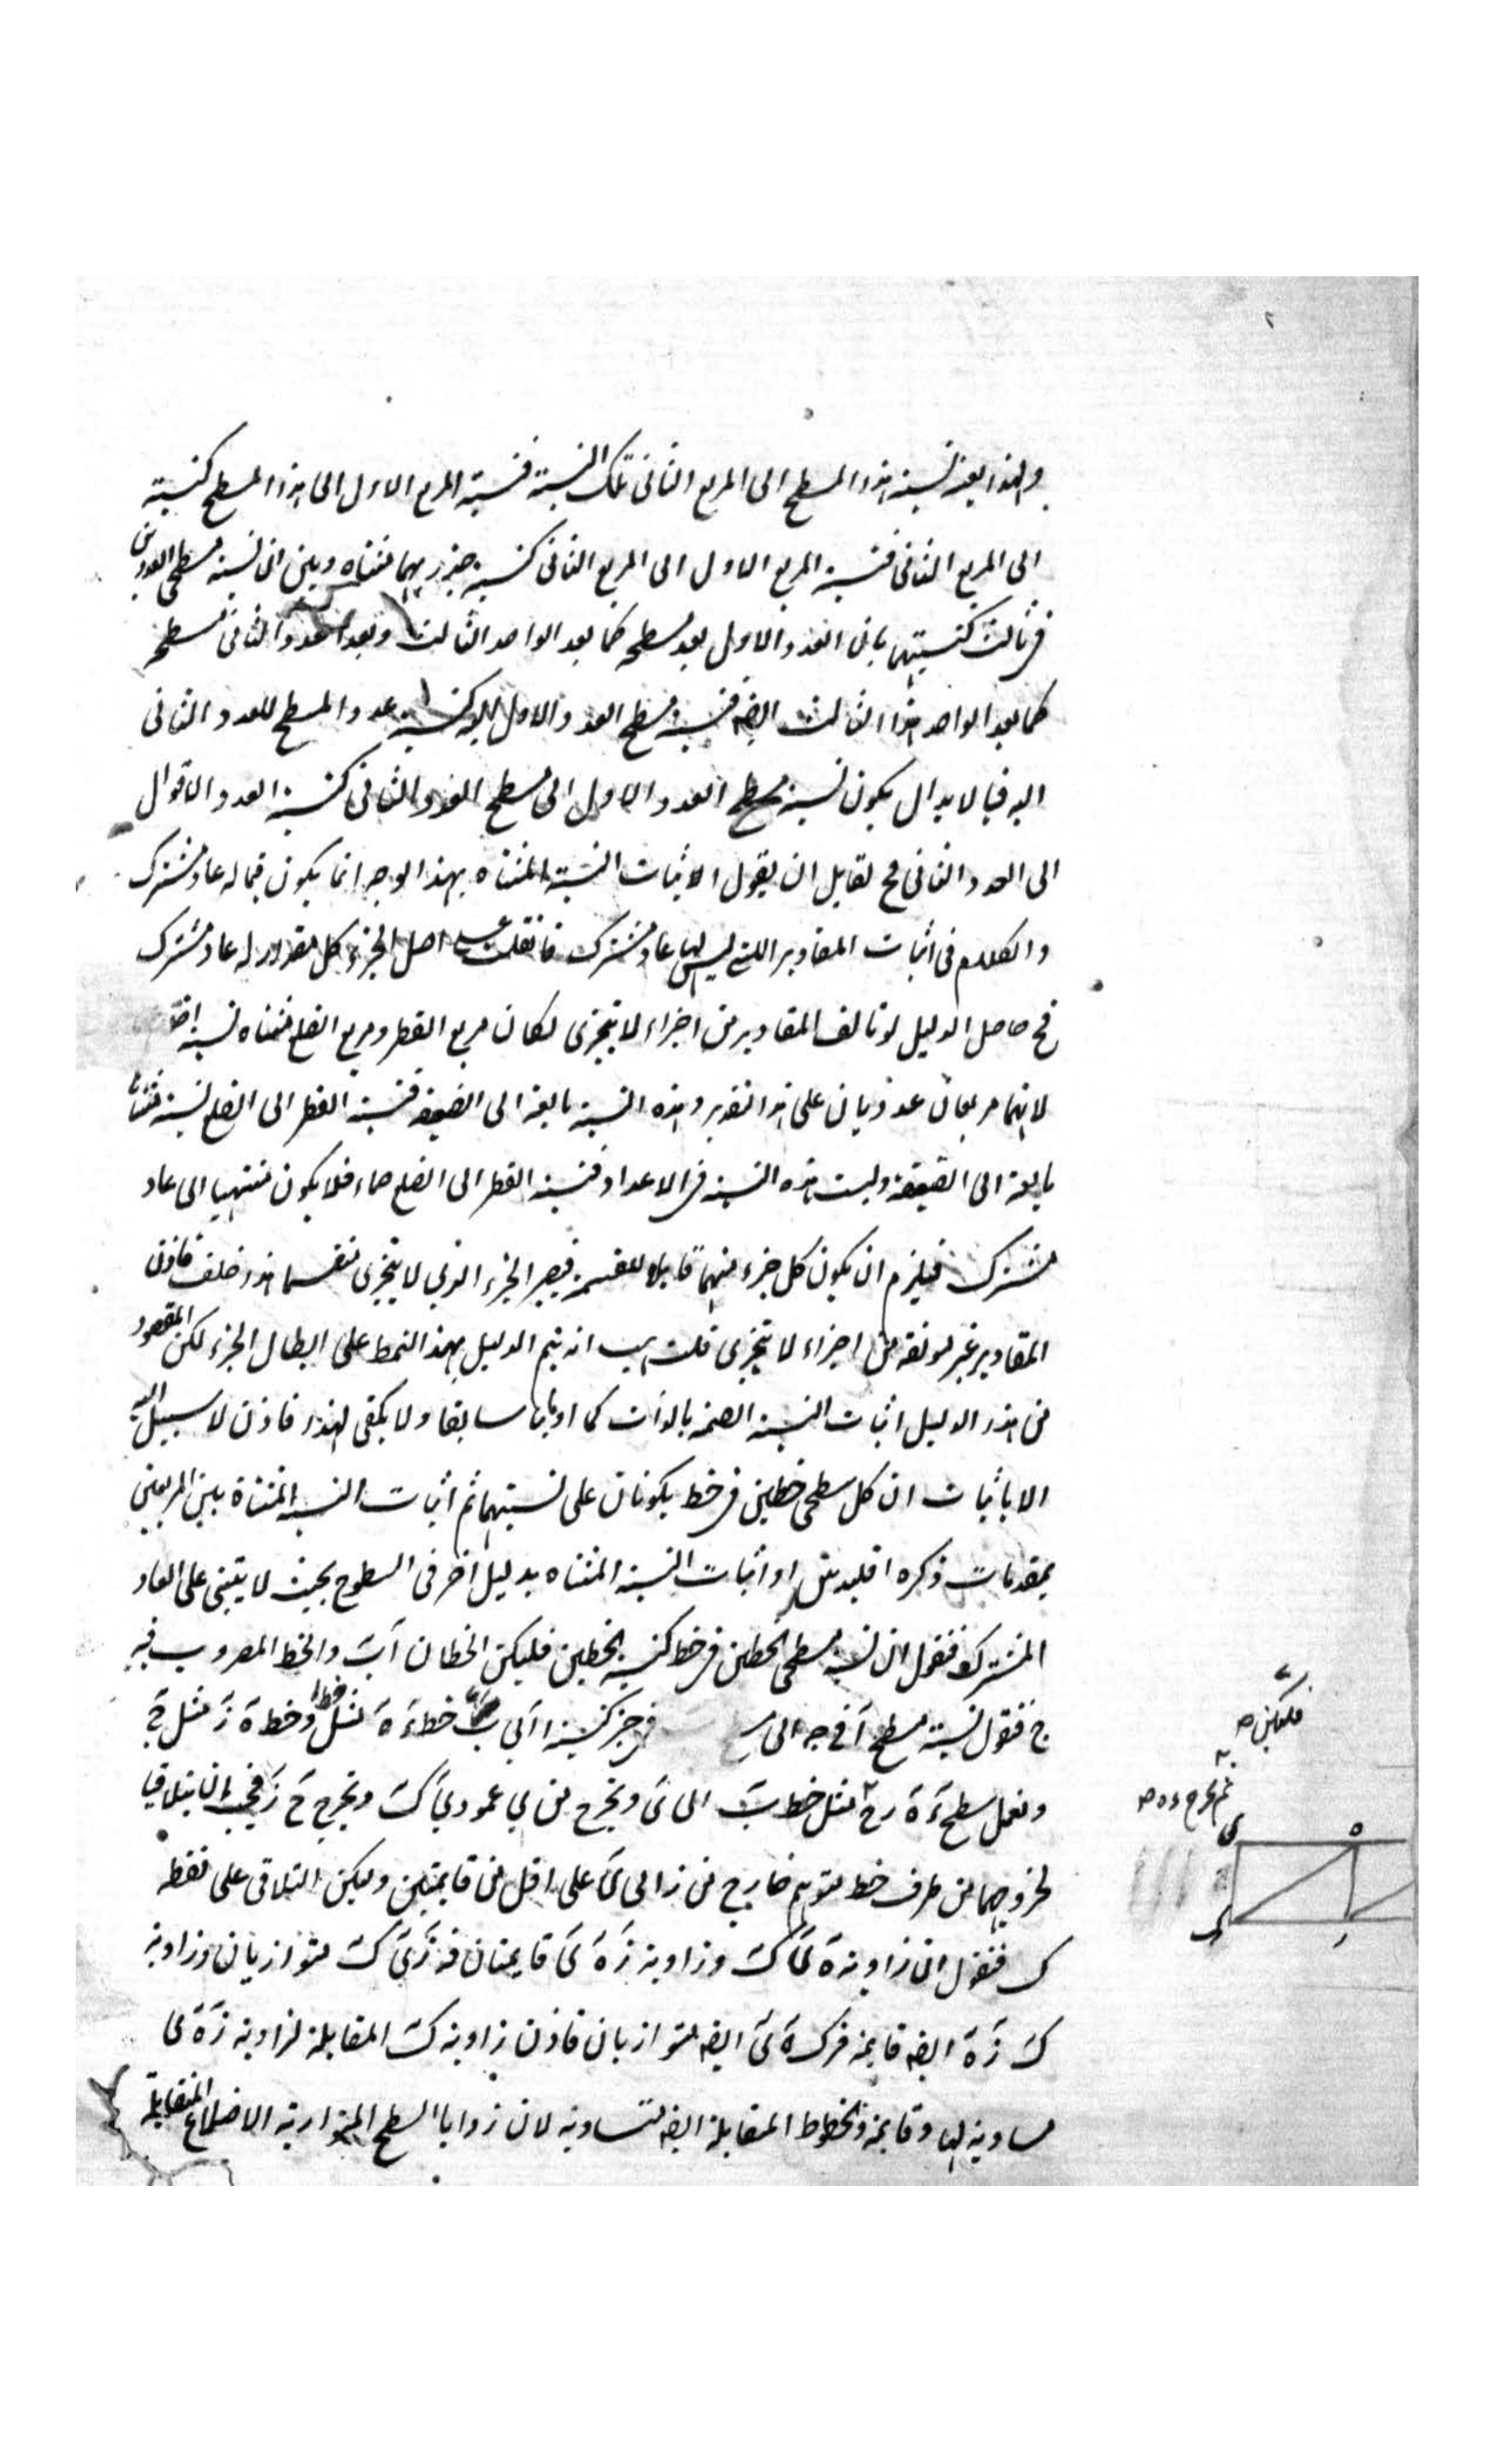 ولهذا بعينه نسبة هذا المسطح الى المربع الثانى تلك النسبة فنسبة المربع الاول الى هذا المسطح كنسبته
الى المربع الثانى فنسبة المربع الاول الى المربع الثانى كنسبة جذريهما مثناه وبين ان نسبة مسطحى العددين
فى ثالث كنسبتهما بان العدد الاول يعد مسطحه كما يعد الواحد الثالث ويعد العدد الثانى مسطحه
كما يعد الواحد هذا الثالث ايضه فنسبة مسطح العدد الاول اليه كنسبة عدد المسطح للعدد الثانى
اليه فبالابدال يكون نسبة مسطح العدد الاول الى مسطح العدد الثانى كنسبة العدد الاول
الى العدد الثانى فح لقايل ان يقول اثبات النسبة المثناه بهذا الوجه انما يكون فيما له عاد مشترك
والكلام فى اثبات المقادير اللتى ليس لها عاد مشترك فان قلت على اصل الجزء كل مقدار له عاد مشترك
فح حاصل الدليل لو تالف المقادير من اجزاء لا يتجزى لكان مربع القطر ومربع الضلع مثناه نسبة
لانهما مربعان عدديان على هذا التقدير وهذه النسبة بالغة الى الضعف فنسبة القطر الى الضلع نسبة مثناتها
بالغة الى الضعف وليست هذه النسبة فى الاعداد فنسبة القطر الى الضلع صماء فلا يكون منتهيا الى عاد
مشترك فيلزم ان يكون كل جزء منهما قابلا للقسمة فيصير الجزء الذى لا يتجزى منقسما هذا خلف فاذن
المقادير غير مولفة من اجزاء لا تتجزى قلت هب انه يتم الدليل بهذا النمط على ابطال الجزء لكن المقصود
من هذا الدليل اثبات النسبة الصمية بالذات كما اومانا سابقا ولا يكفى لهذا فاذن لا سبيل اليه
الا باثبات ان كل سطحى خطين فى خط يكونان على نسبتهما ثم اثبات النسبة المثناة بين المربعين
بمقدمات ذكره اقليدس او اثبات النسبة المثناه بدليل اخر فى السطوح بحيث لا يبتنى على العاد
المشترك فنقول ان نسبة مسطحى الخطين فى خط كنسبة الخطين فليكن الخطان آ ب والخط المضروب فيه
ج فنقول نسبة مسطح آ فى ج الى فى ج كنسبة ا الى ب خط ء ه مثل خط ا وخط ه ز مثل ج
ونعمل سطح ء ه ر ح مثل خط ب الى ى ونخرج من ى عمود ى ك ونخرج ح ز فيجب ان يتلاقيا
لخروجهما من طرف خط متوهم خارج من ز الى ى على اقل من قايمتين وليكن التلاقى على نقطه
ك فنقول ان زاوية ه ى ك وزاوية ز ه ى قايمتان فه ز ى ك متوازيان وزاوية
ك ز ه ايضه قايمه فز ك ه ى ايضه متوازيان فاذن زاوية ك المقابلة لزاوية ز ه ى
مساوية لها وقايمه والخطوط المقابلة ايضه متساويه لان زوايا السطح المتوازية الاضلاع المتقابلة
فليكن ء
ثم نخرج ء ه
ى
ه
ك
ر